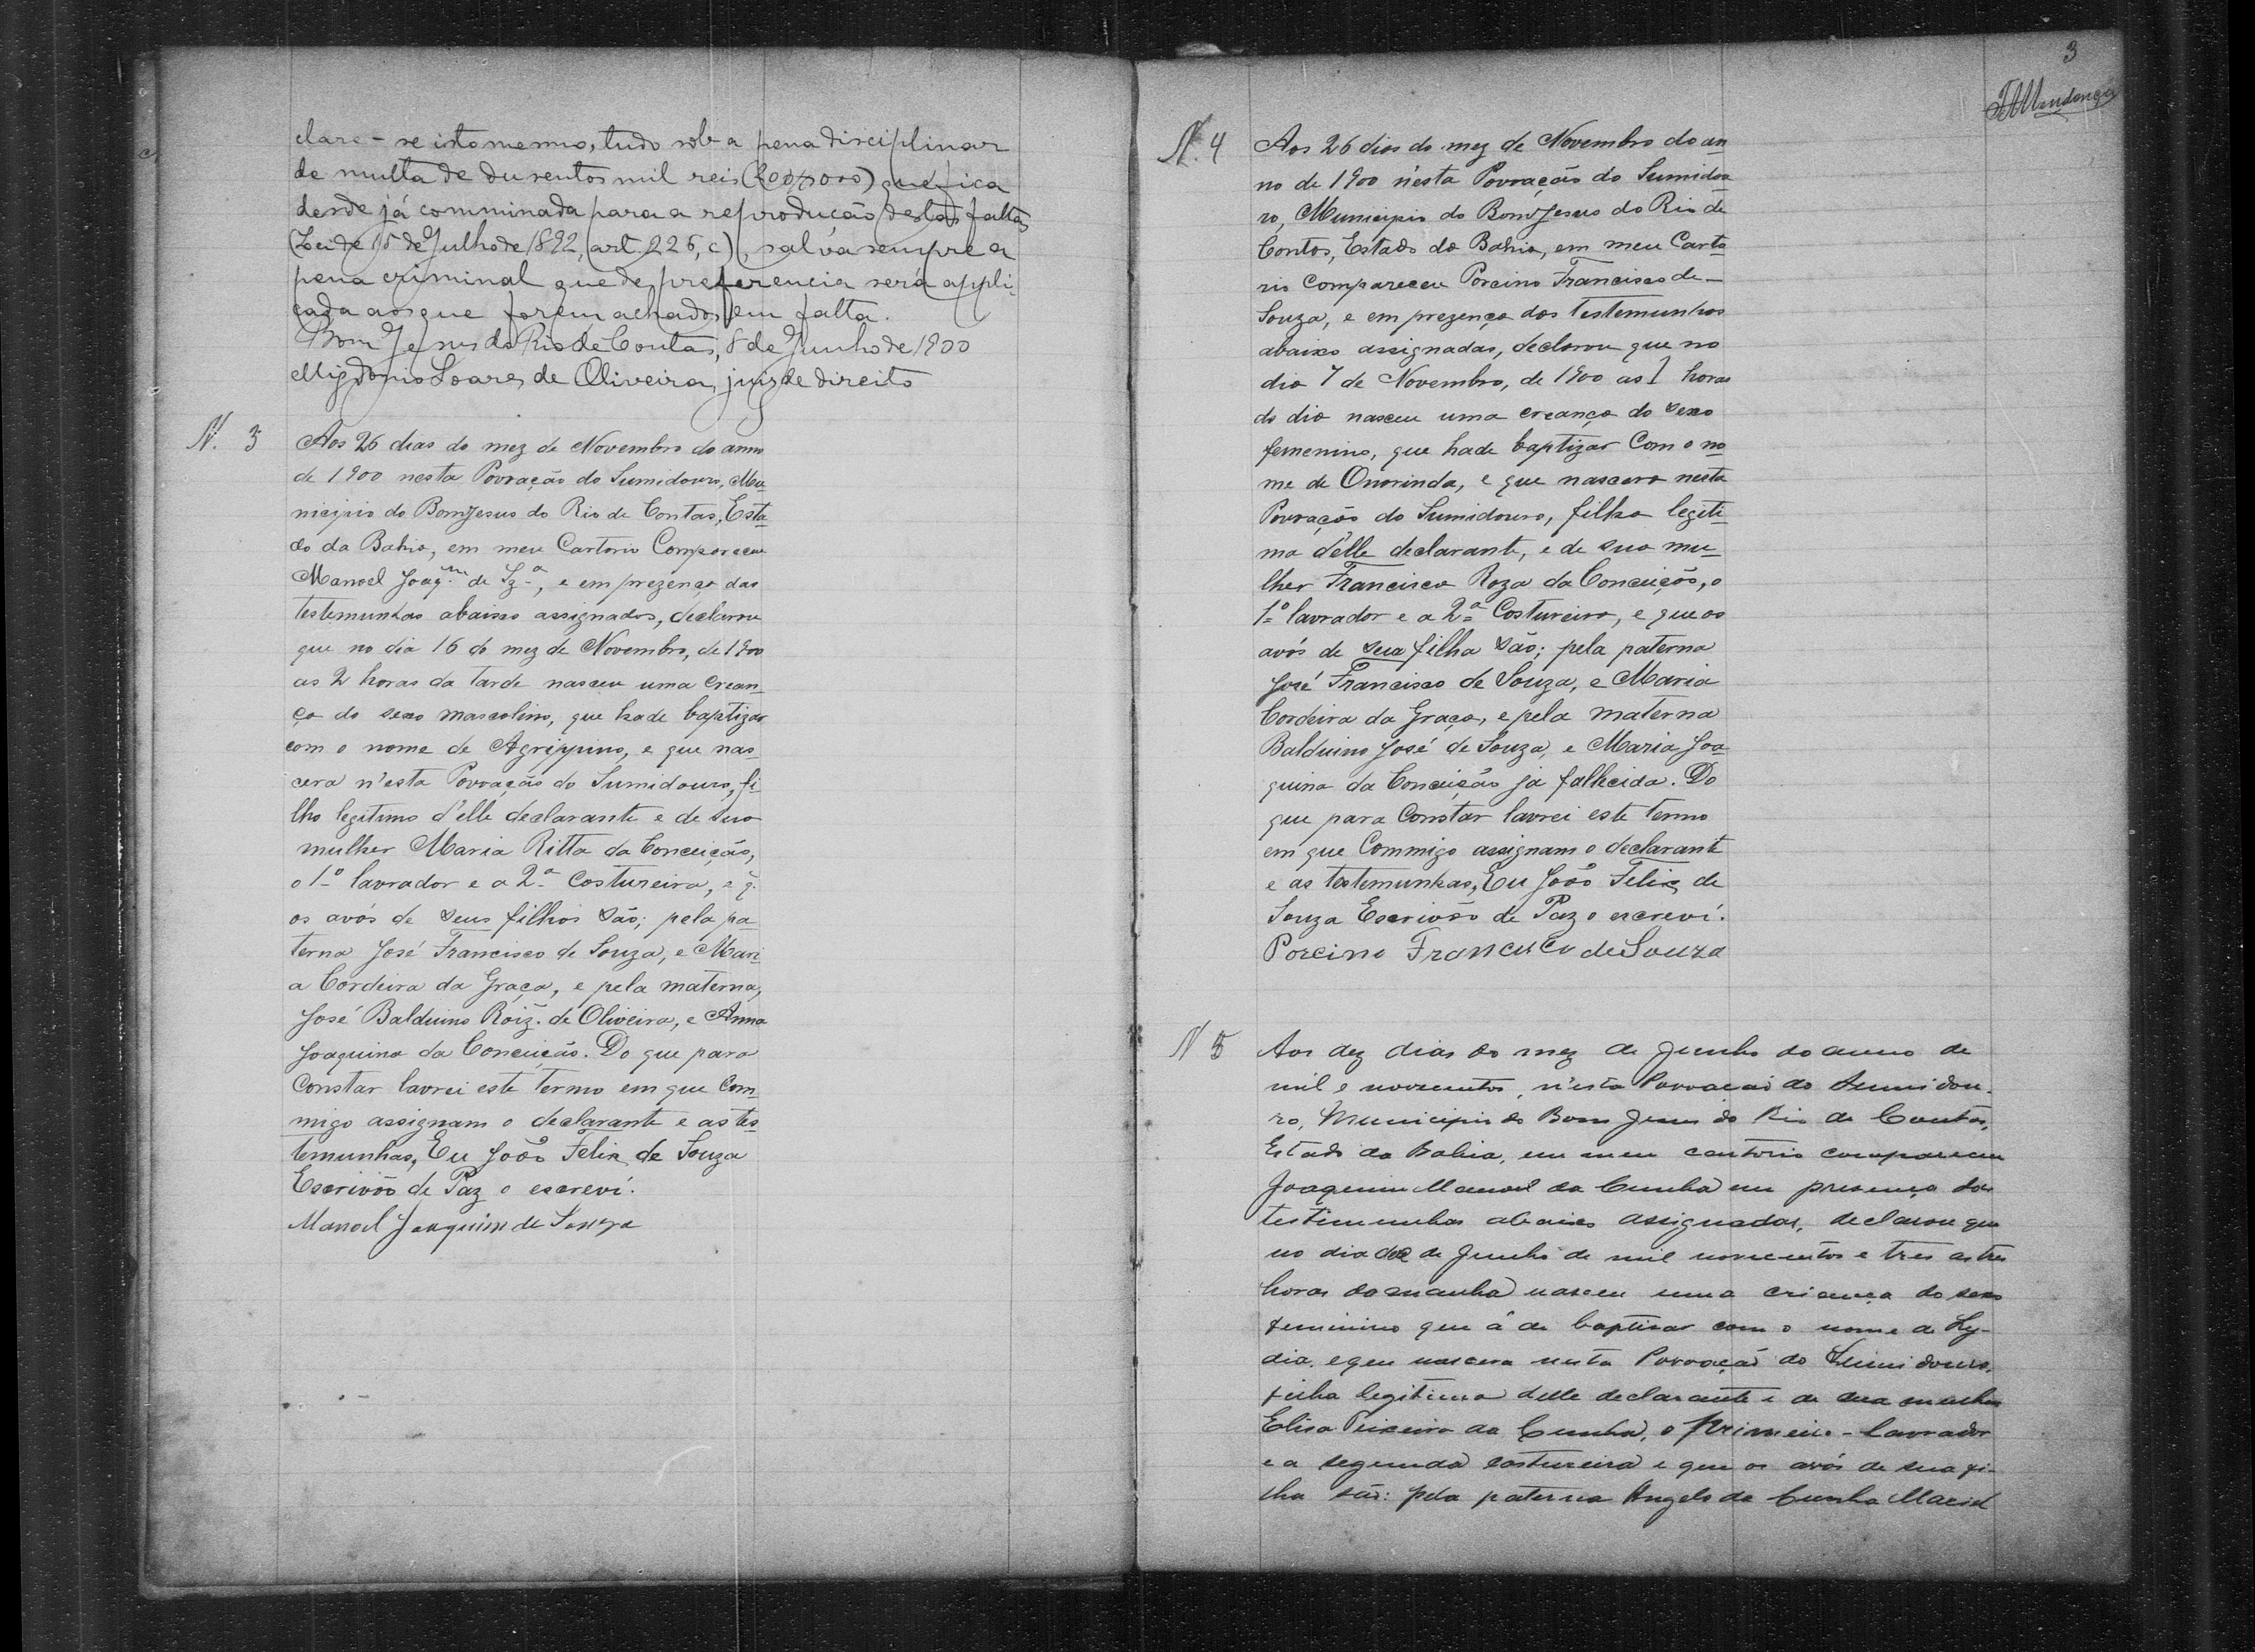 clare-se isto mesmo, tudo sob a pena disciplinar
de multa de dusentos mil reis (200$000) que fica
desde já comminada para a reproducção destas faltas
(Lei de 15 de Julho de 1892, art. 226, c), salva sempre a
pena criminal que de preferencia será appli-
cada aos que forem achados em falta.
Bom Jesus do Rio de Contas, 8 de Junho de 1900
Migdonio Soares de Oliveira, juiz de direito
N. 3
Aos 26 dias do mez de Novembro do anno
de 1900 nesta Povoação do Sumidouro, Mu-
nicipio do Bom Jesus do Rio de Contas, Esta-
do da Bahia, em meu Cartorio Compareceu
Manoel Joaqm. de Sza., e em prezença das
testemunhas abaixo assignados, declarou
que no dia 16 do mez de Novembro, de 1900
as 2 horas da tarde nasceu uma Crean-
ça do sexo mascolino, que hade baptizar
com o nome de Agrippino, e que nas-
cera n'esta Povoação do Sumidouro, fi-
lho legitimo d'elle declarante e de sua
mulher Maria Ritta da Conceição,
o 1º lavrador e a 2ª Costureira, e q.
os avós de seus filhos são; pela pa-
terna José Francisco de Souza, e Mari-
a Cordeira da Graça, e pela materna,
José Balduino Roiz. de Oliveira, e Anna
Joaquina da Conceição. Do que para
Constar lavrei este termo em que Com-
migo assignam o declarante e as tes-
temunhas, Eu João Felix de Souza
Escrivão de Paz o escreví.
Manoel Joaquim de Souza
3
N. 4
Aos 26 dias do mez de Novembro do an-
no de 1900 n'esta Povoação do Sumidou-
ro, Municipio do Bom Jesus do Rio de
Contas, Estado da Bahia, em meu Carto-
rio Compareceu Porcino Francisco de
Souza, e em prezença das testemunhas
abaixo assignadas, declarou que no
dia 7 de Novembro, de 1900 as 1 horas
do dia nasceu uma creança do sexo
femenino, que hade baptizar Com o no-
me de Onorinda, e que nascera nesta
Povoação do Sumidouro, filha legiti-
ma d'elle declarante, e de sua mu-
lher Francisca Roza da Conceição, o
1º lavrador e a 2ª Costureira, e que os
avós de sua filha são; pela paterna
José Francisco de Souza, e Maria
Cordeira da Graça, e pela materna
Balduino José de Souza, e Maria Joa-
quina da Conceição já fallecida. Do
que para Constar lavrei este termo
em que Commigo assignam o declarante
e as testemunhas, Eu João Felix de
Souza Escrivão de Paz o escreví.
Porcino Francisco de Souza
N 5
Aos dez dias do mez de Junho do anno de
mil e novecentos, n'esta Povoação do Sumidou-
ro, Municipio do Bom Jesus do Rio de Contas,
Estado da Bahia, em meu cartorio compareceu
Joaquim Manoel da Cunha em presença das
testimunhas abaixo assignadas, declarou que
no dia de Junho de mil novecentos e tres as tres
horas da manha nasceu uma criança do sexo
feminino que á de baptisar com o nome de Ly-
dia, e que nascera nesta Povoação do Sumidouro,
filha legitima delle declarante e de sua mulher
Elisa Teixeira da Cunha, o primeiro - lavrador
e a segunda costureira e que os avós de sua fi-
lha são: pela paterna Angelo da Cunha Maciel